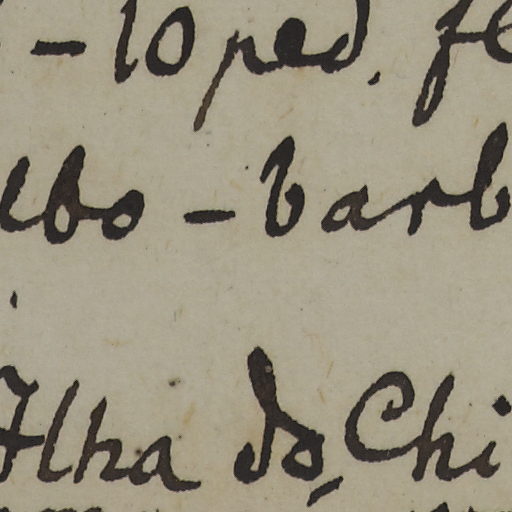 -10 ped. fl
lbo-barb
Ilha do Chi